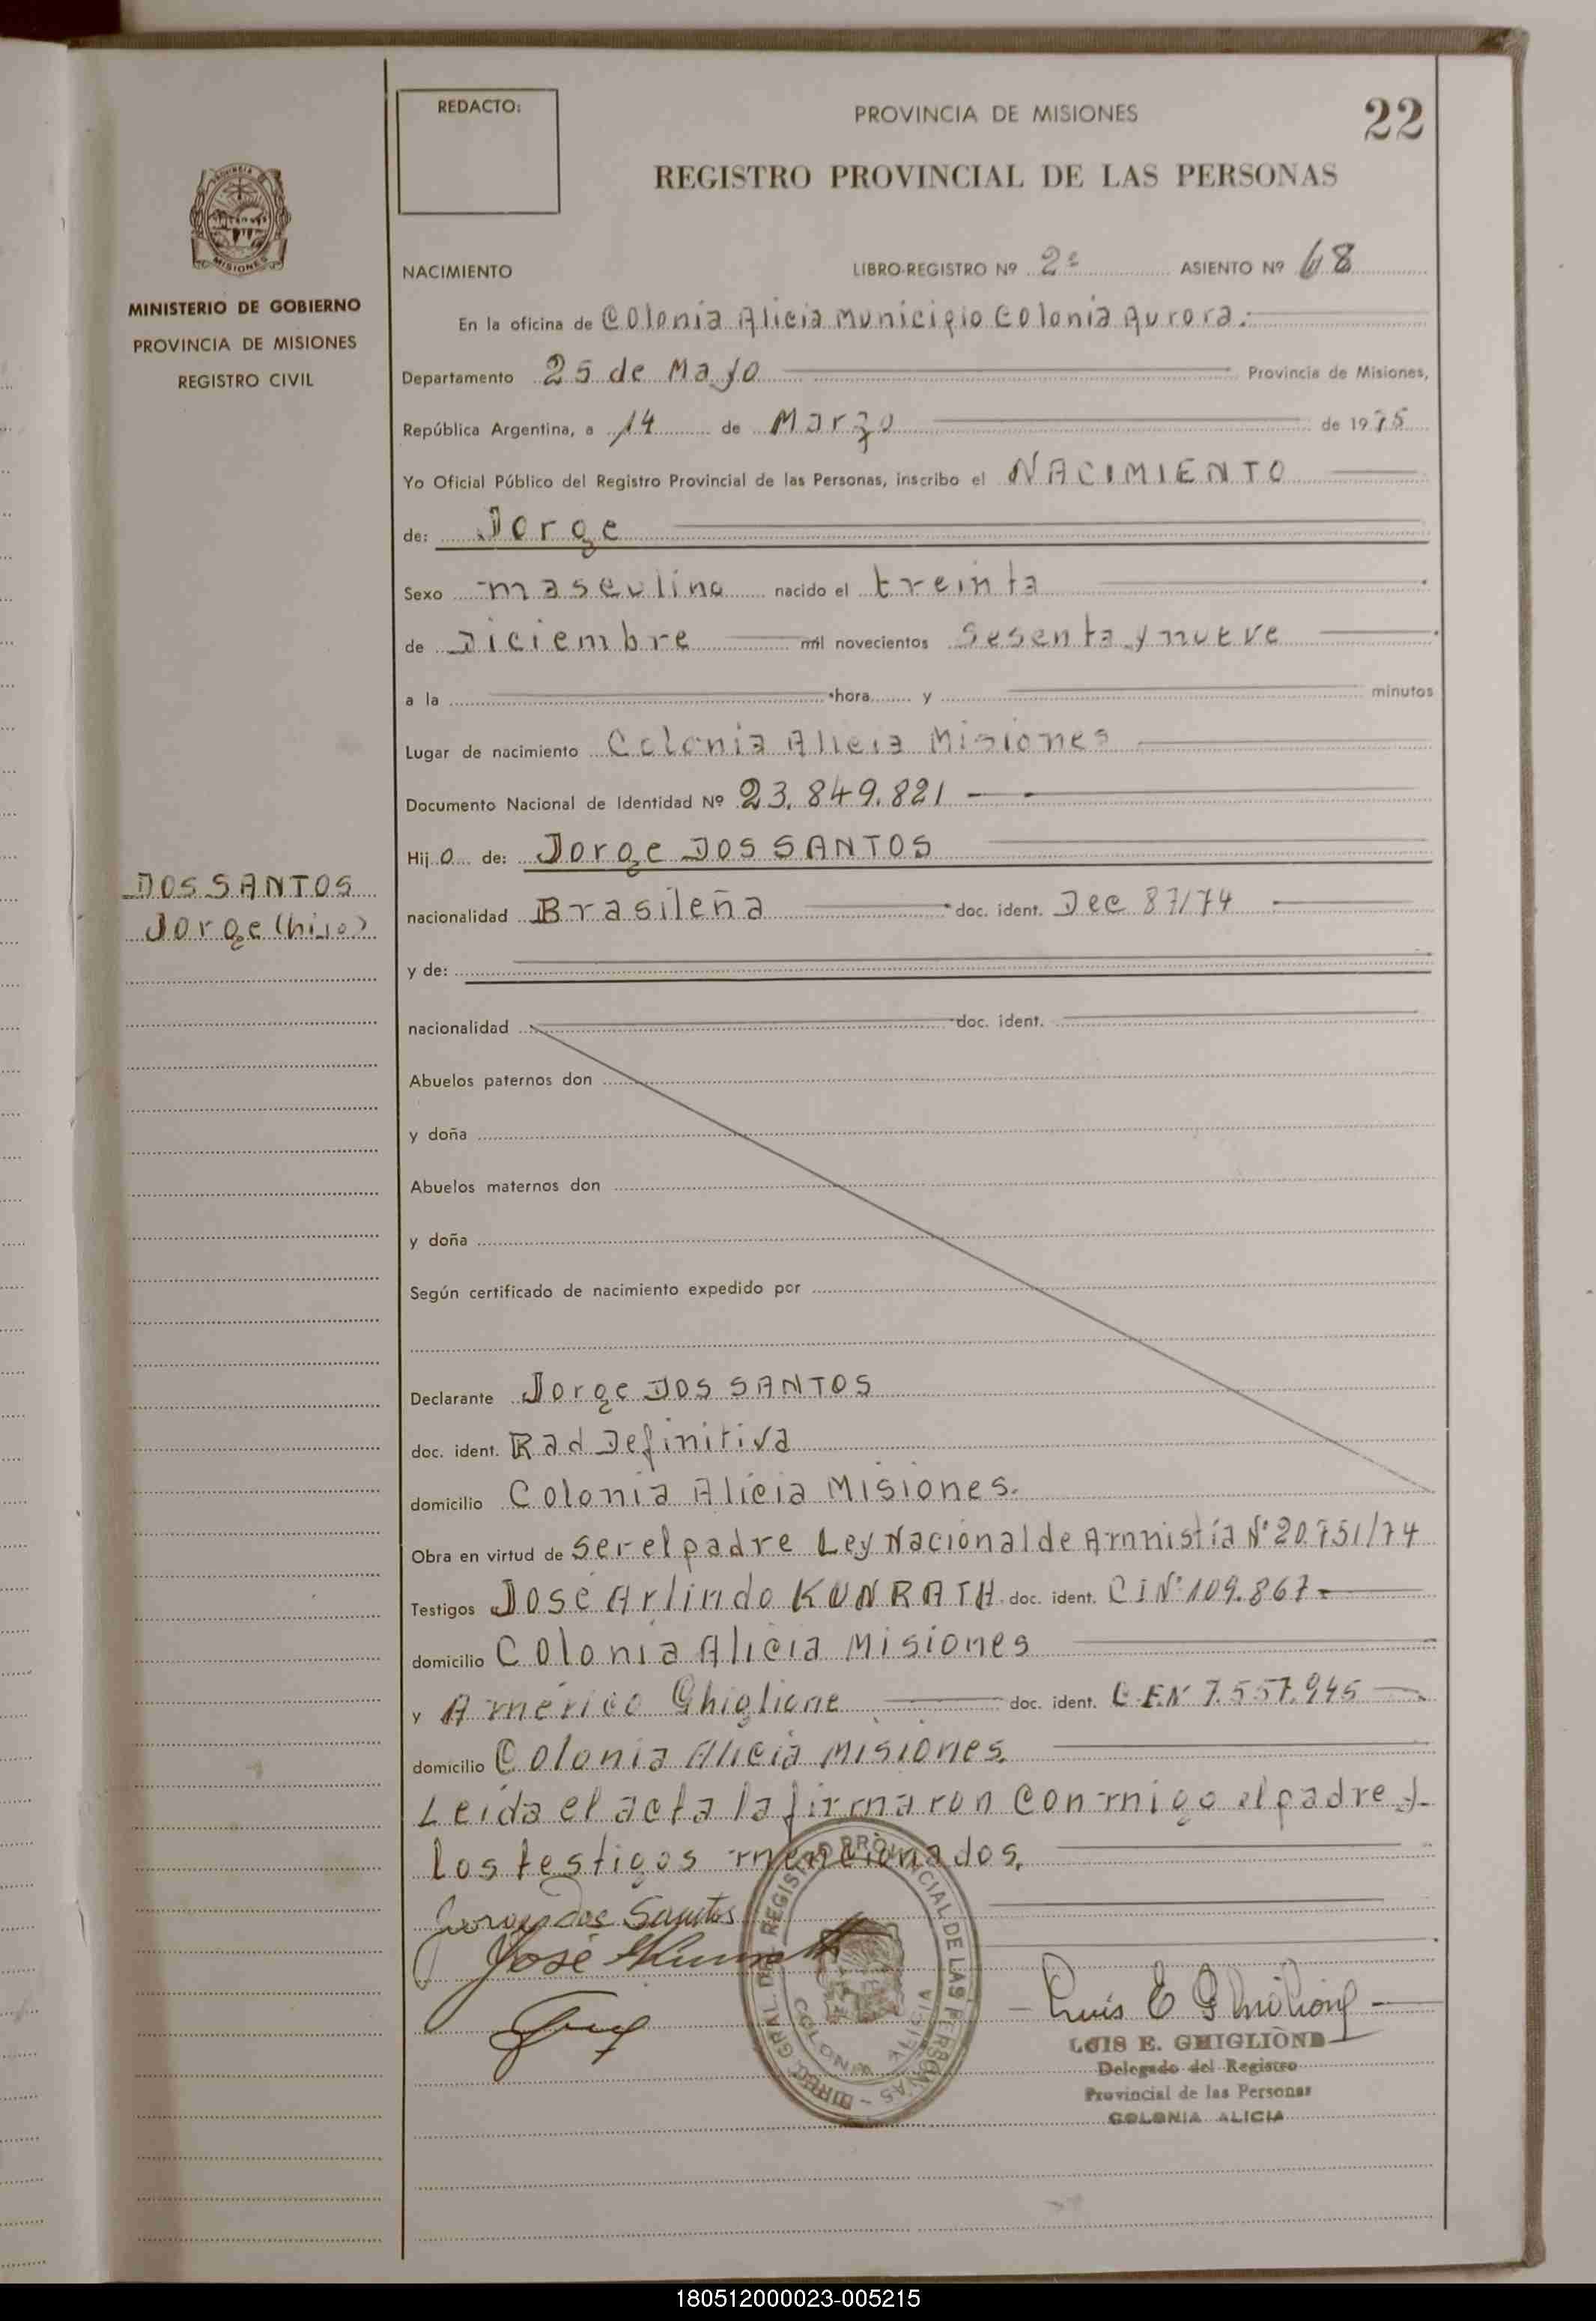 REDACTO:
PROVINCIA DE MISIONES
22
REGISTRO PROVINCIAL DE LAS PERSONAS
MISIONES
MINISTERIO DE GOBIERNO
PROVINCIA DE MISIONES
REGISTRO CIVIL
DOS SANTOS
Jorge (hijo)
NACIMIENTO LIBRO-REGISTRO Nº 2º ASIENTO Nº 68
En la oficina de Colonia Alicia Municipio Colonia Aurora.
Departamento 25 de Mayo Provincia de Misiones,
República Argentina, a 14 de Marzo de 1975
Yo Oficial Público del Registro Provincial de las Personas, inscribo el NACIMIENTO
de: Jorge
Sexo masculino nacido el treinta
de Diciembre mil novecientos Sesenta y nueve
a la hora y minutos
Lugar de nacimiento Colonia Alicia Misiones
Documento Nacional de Identidad Nº 23.849.821
Hijo de: Jorge DOS SANTOS
nacionalidad Brasileña doc. ident. Dec 87/74
y de:
nacionalidad doc. ident.
Abuelos paternos don
y doña
Abuelos maternos don
y doña
Según certificado de nacimiento expedido por
Declarante Jorge DOS SANTOS
doc. ident. Rad Definitiva
domicilio Colonia Alicia Misiones.
Obra en virtud de ser el padre Ley Nacional de Amnistía Nº 20.751/74
Testigos José Arlindo KUNRATH doc. ident. C I Nº 109.867
domicilio Colonia Alicia Misiones
y Américo Ghiglione doc. ident. 7.557.945
domicilio Colonia Alicia Misiones.
Leída el acta la firmaron conmigo el padre y
los testigos mencionados.
Jorge dos Santos
José Kunrath
DIREC. GRAL. DEL REGISTRO PROVINCIAL DE LAS PERSONAS -
COLONIA ALICIA
Luis E Ghiglione
LUIS E. GHIGLIONE
Delegado del Registro
Provincial de las Personas
COLONIA ALICIA
180512000023-005215